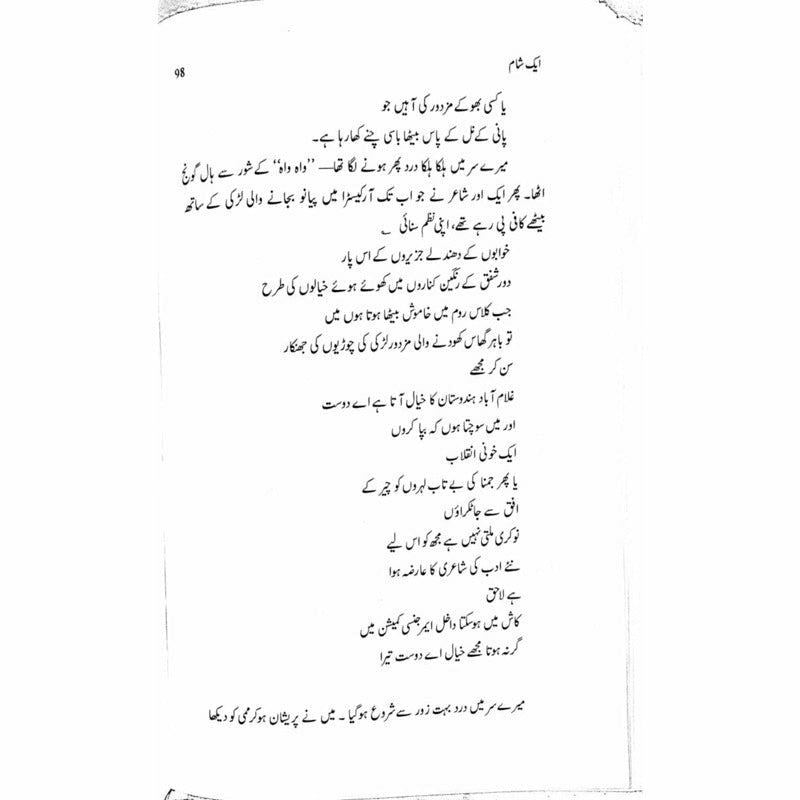 ایک شام
98
یا کسی بھوکے مزدور کی آہیں جو
پانی کے نل کے پاس بیٹھا باسی چنے کھا رہا ہے۔
میرے سر میں ہلکا ہلکا درد پھر ہونے لگا تھا— ”واہ واہ“ کے شور سے ہال گونج
اٹھا۔ پھر ایک اور شاعر نے جو اب تک آرکیسٹرا میں پیانو بجانے والی لڑکی کے ساتھ
بیٹھے کافی پی رہے تھے، اپنی نظم سنائی ؎
خوابوں کے دھندلے جزیروں کے اس پار
دور شفق کے رنگین کناروں میں کھوئے ہوئے خیالوں کی طرح
جب کلاس روم میں خاموش بیٹھا ہوتا ہوں میں
تو باہر گھاس کھودنے والی مزدور لڑکی کی چوڑیوں کی جھنکار
سن کر مجھے
غلام آباد ہندوستان کا خیال آتا ہے اے دوست
اور میں سوچتا ہوں کہ بپا کروں
ایک خونی انقلاب
یا پھر جمنا کی بے تاب لہروں کو چیر کے
افق سے جا ٹکراؤں
نوکری ملتی نہیں ہے مجھ کو اس لیے
نئے ادب کی شاعری کا عارضہ ہوا
ہے لاحق
کاش میں ہوسکتا داخل ایمرجنسی کمیشن میں
گر نہ ہوتا مجھے خیال اے دوست تیرا
میرے سر میں درد بہت زور سے شروع ہوگیا ۔ میں نے پریشان ہوکر ممی کو دیکھا